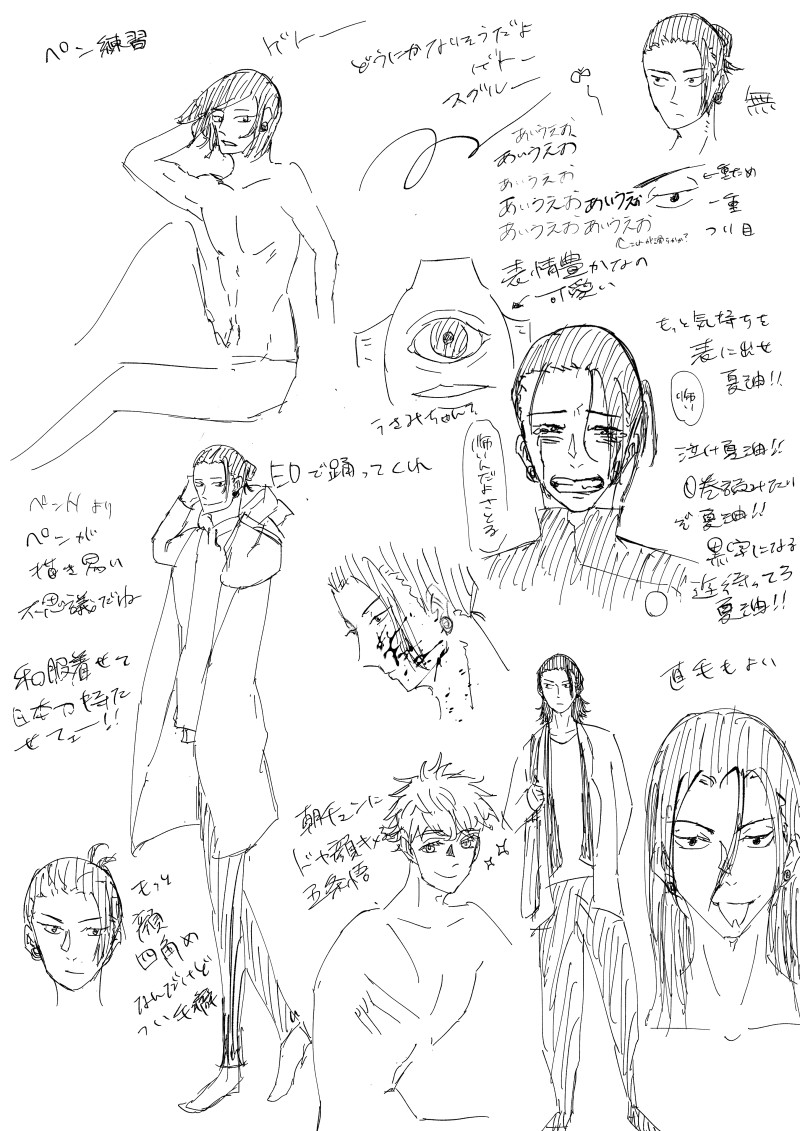 ペン練習
ゲトー
どうにかなりそうだよ
ゲトー
スグルー
無
あいうえお
あいうえお
あいうえお
あいうえお あいうえお
あいうえお あいうえお
←一重だめ
一重
つり目
表情豊かなの
可愛い
もっと気持ちを
表に出せ
夏油!!
怖い
うさみちゃんて
怖いんだよさとる
泣け夏油!!
0巻読みたい
ぞ夏油!!
黒字になる
迄待ってろ
夏油!!
EDで踊ってくれ
ペンAより
ペンが
描き易い
不思議だね
和服着せて
日本刀持た
せてェー!!
直毛もよい
朝チュンに
ドヤ顔キメる
五条悟
もっと
顔
四角め
なんだけど
つい手癖